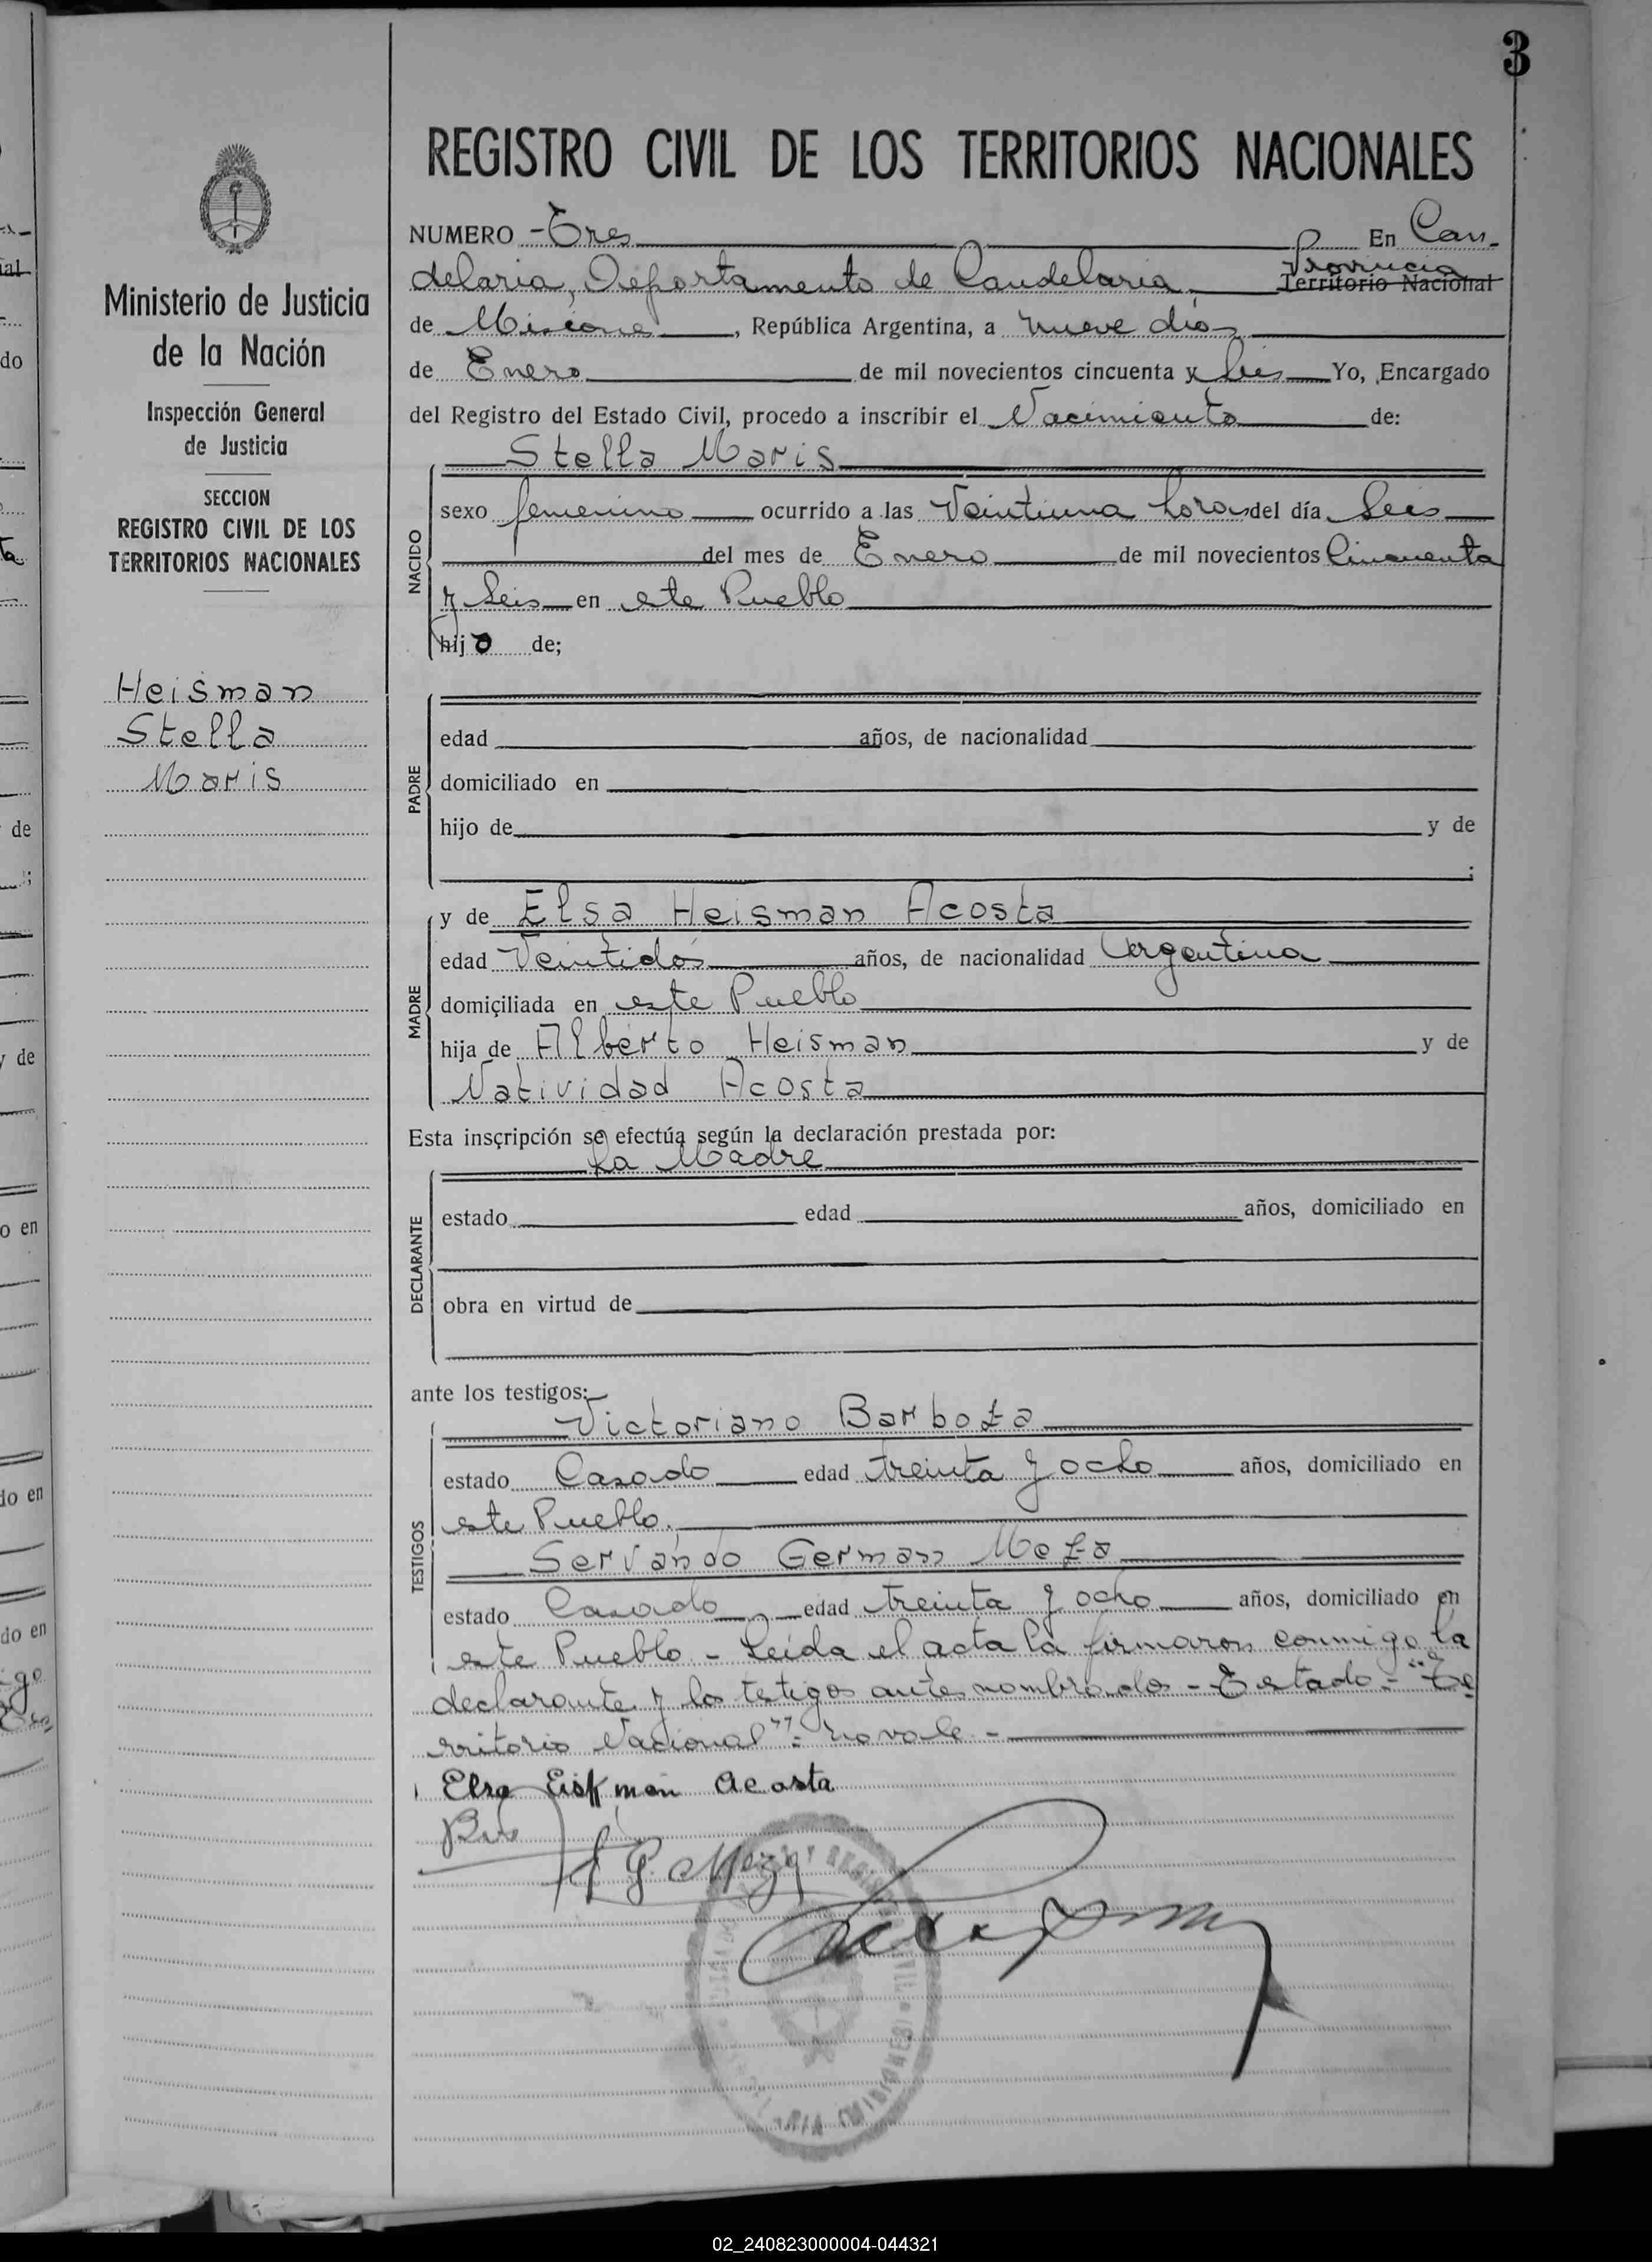 3
REGISTRO CIVIL DE LOS TERRITORIOS NACIONALES
Ministerio de Justicia
de la Nación
Inspección General
de Justicia
SECCION
REGISTRO CIVIL DE LOS
TERRITORIOS NACIONALES
Heisman
Stella
Maris
NUMERO - Tres En Can-
delaria, Departamento de Candelaria, Provincia
Territorio Nacional
de Misiones, República Argentina, a nueve días
de Enero de mil novecientos cincuenta y Seis Yo, Encargado
del Registro del Estado Civil, procedo a inscribir el Nacimiento de:
Stella Maris
NACIDO
sexo femenino ocurrido a las Veintiuna horas del día Seis
del mes de Enero de mil novecientos Cincuenta
y Seis en este Pueblo
hija de;
PADRE
edad años, de nacionalidad
domiciliado en
hijo de y de
;
MADRE
y de Elsa Heisman Acosta
edad Veintidós años, de nacionalidad Argentina
domiciliada en este Pueblo
hija de Alberto Heisman y de
Natividad Acosta
Esta inscripción se efectúa según la declaración prestada por:
La Madre
DECLARANTE
estado edad años, domiciliado en
obra en virtud de
ante los testigos:
TESTIGOS
Victoriano Barboza
estado Casado edad treinta y ocho años, domiciliado en
este Pueblo.
Servando German Meza
estado Casado edad treinta y ocho años, domiciliado en
este Pueblo - Leída el acta la firmaron conmigo la
declarante y los testigos antes nombrados - Testado: "Te
rritorio Nacional": no vale -
Elsa Eisman Acosta
S G Meza
02_240823000004-044321